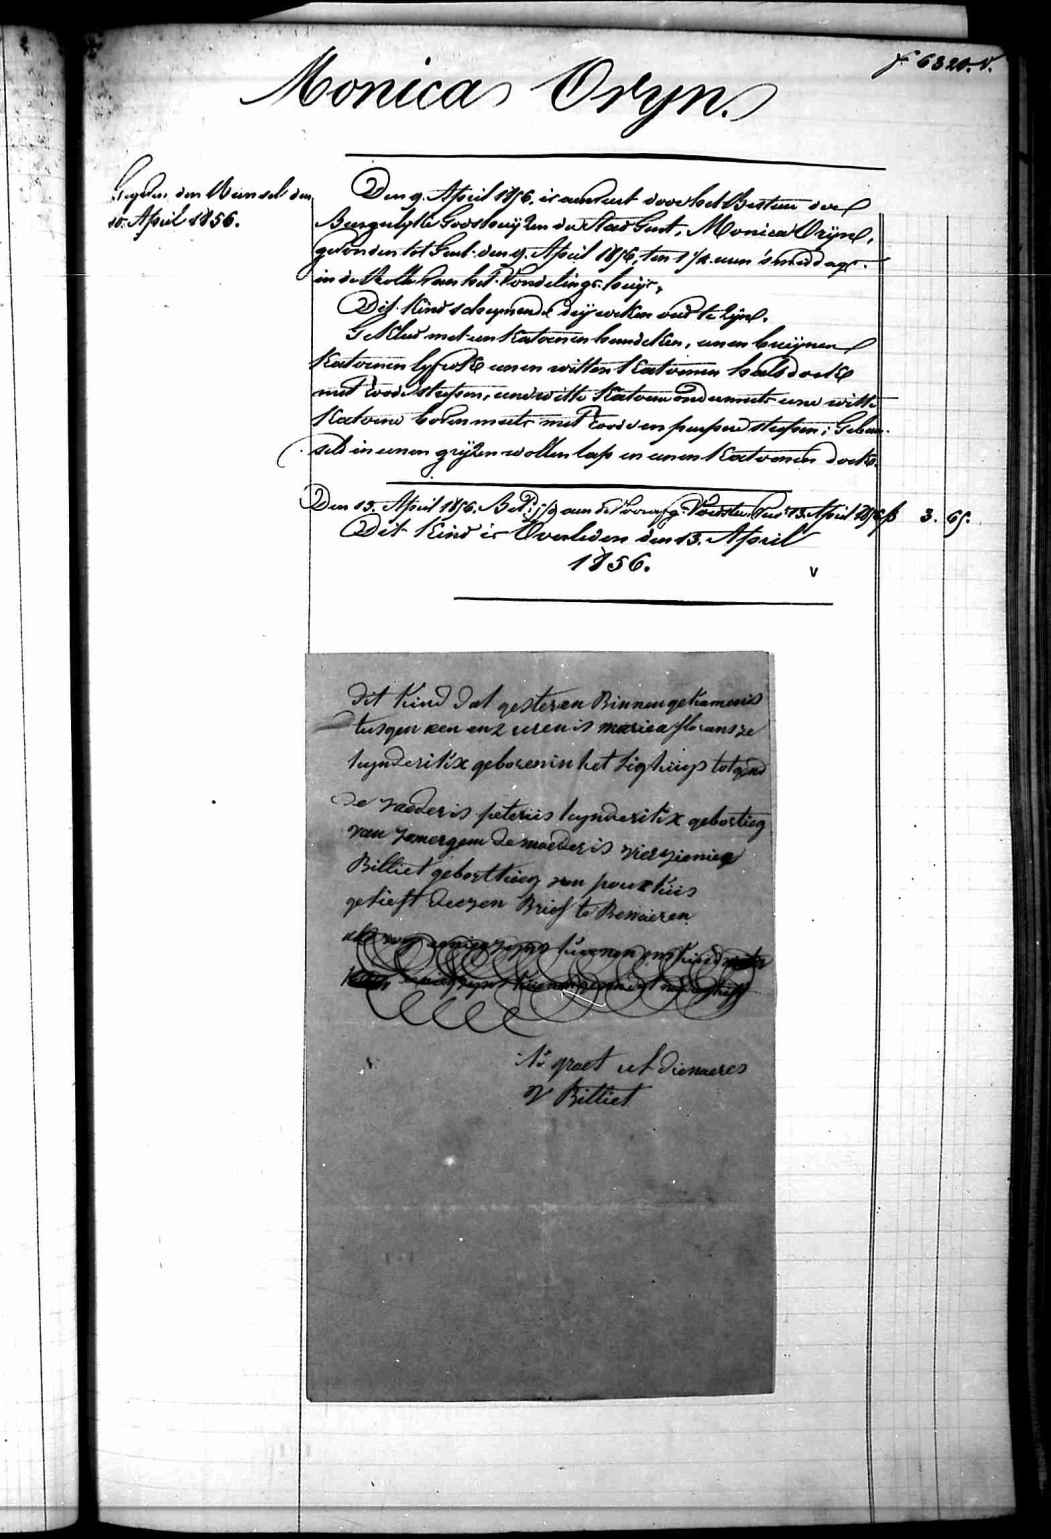 f 6320. v.
Monica Oryn.
den Winsel den
10. April 1856.
Den 9. April 1856. is aenveert door het Bestuer der
Burgerlyke Godshuijzen der Stad Gent, Monica Orijn,
gevonden tot Gent den 9. April 1856, ten 1 1/4 uren 's middags
in de Rolle van het Vondelings-huijs,
Dit Kind schynende drij weken oud te zijn.
Gekleed met een Katoenen hemdeken, eenen bruijnen
Katoenen lyfrok eenen witten Katoenen halsdoek
met roode strepen, eene witte Katoene ondermuts eene witte
Katoene bovenmuts met roode en purpere strepen; Gebun-
seld in eenen grijzen wollen lap en eenen Katoenen doek.
Den 13. April 1856. Bet. aen de Voorsz. Voedster 13 April 1856 3. 65.
Dit Kind is Overleden den 13. April
1856.
v
dit Kind dat gesteren Binnen gekomen is
tusgen een en 2 uren is marica floransze
luynderikx geboren in het zighuys tot gend
de vaeder is peterus luynderikx geborteg
van zomergem de moeder is vierzienieq
Billiet geborthieg van pouxkus
gelieft deezen Brief te Bewaeren
groet uE dienaeres
V Billiet